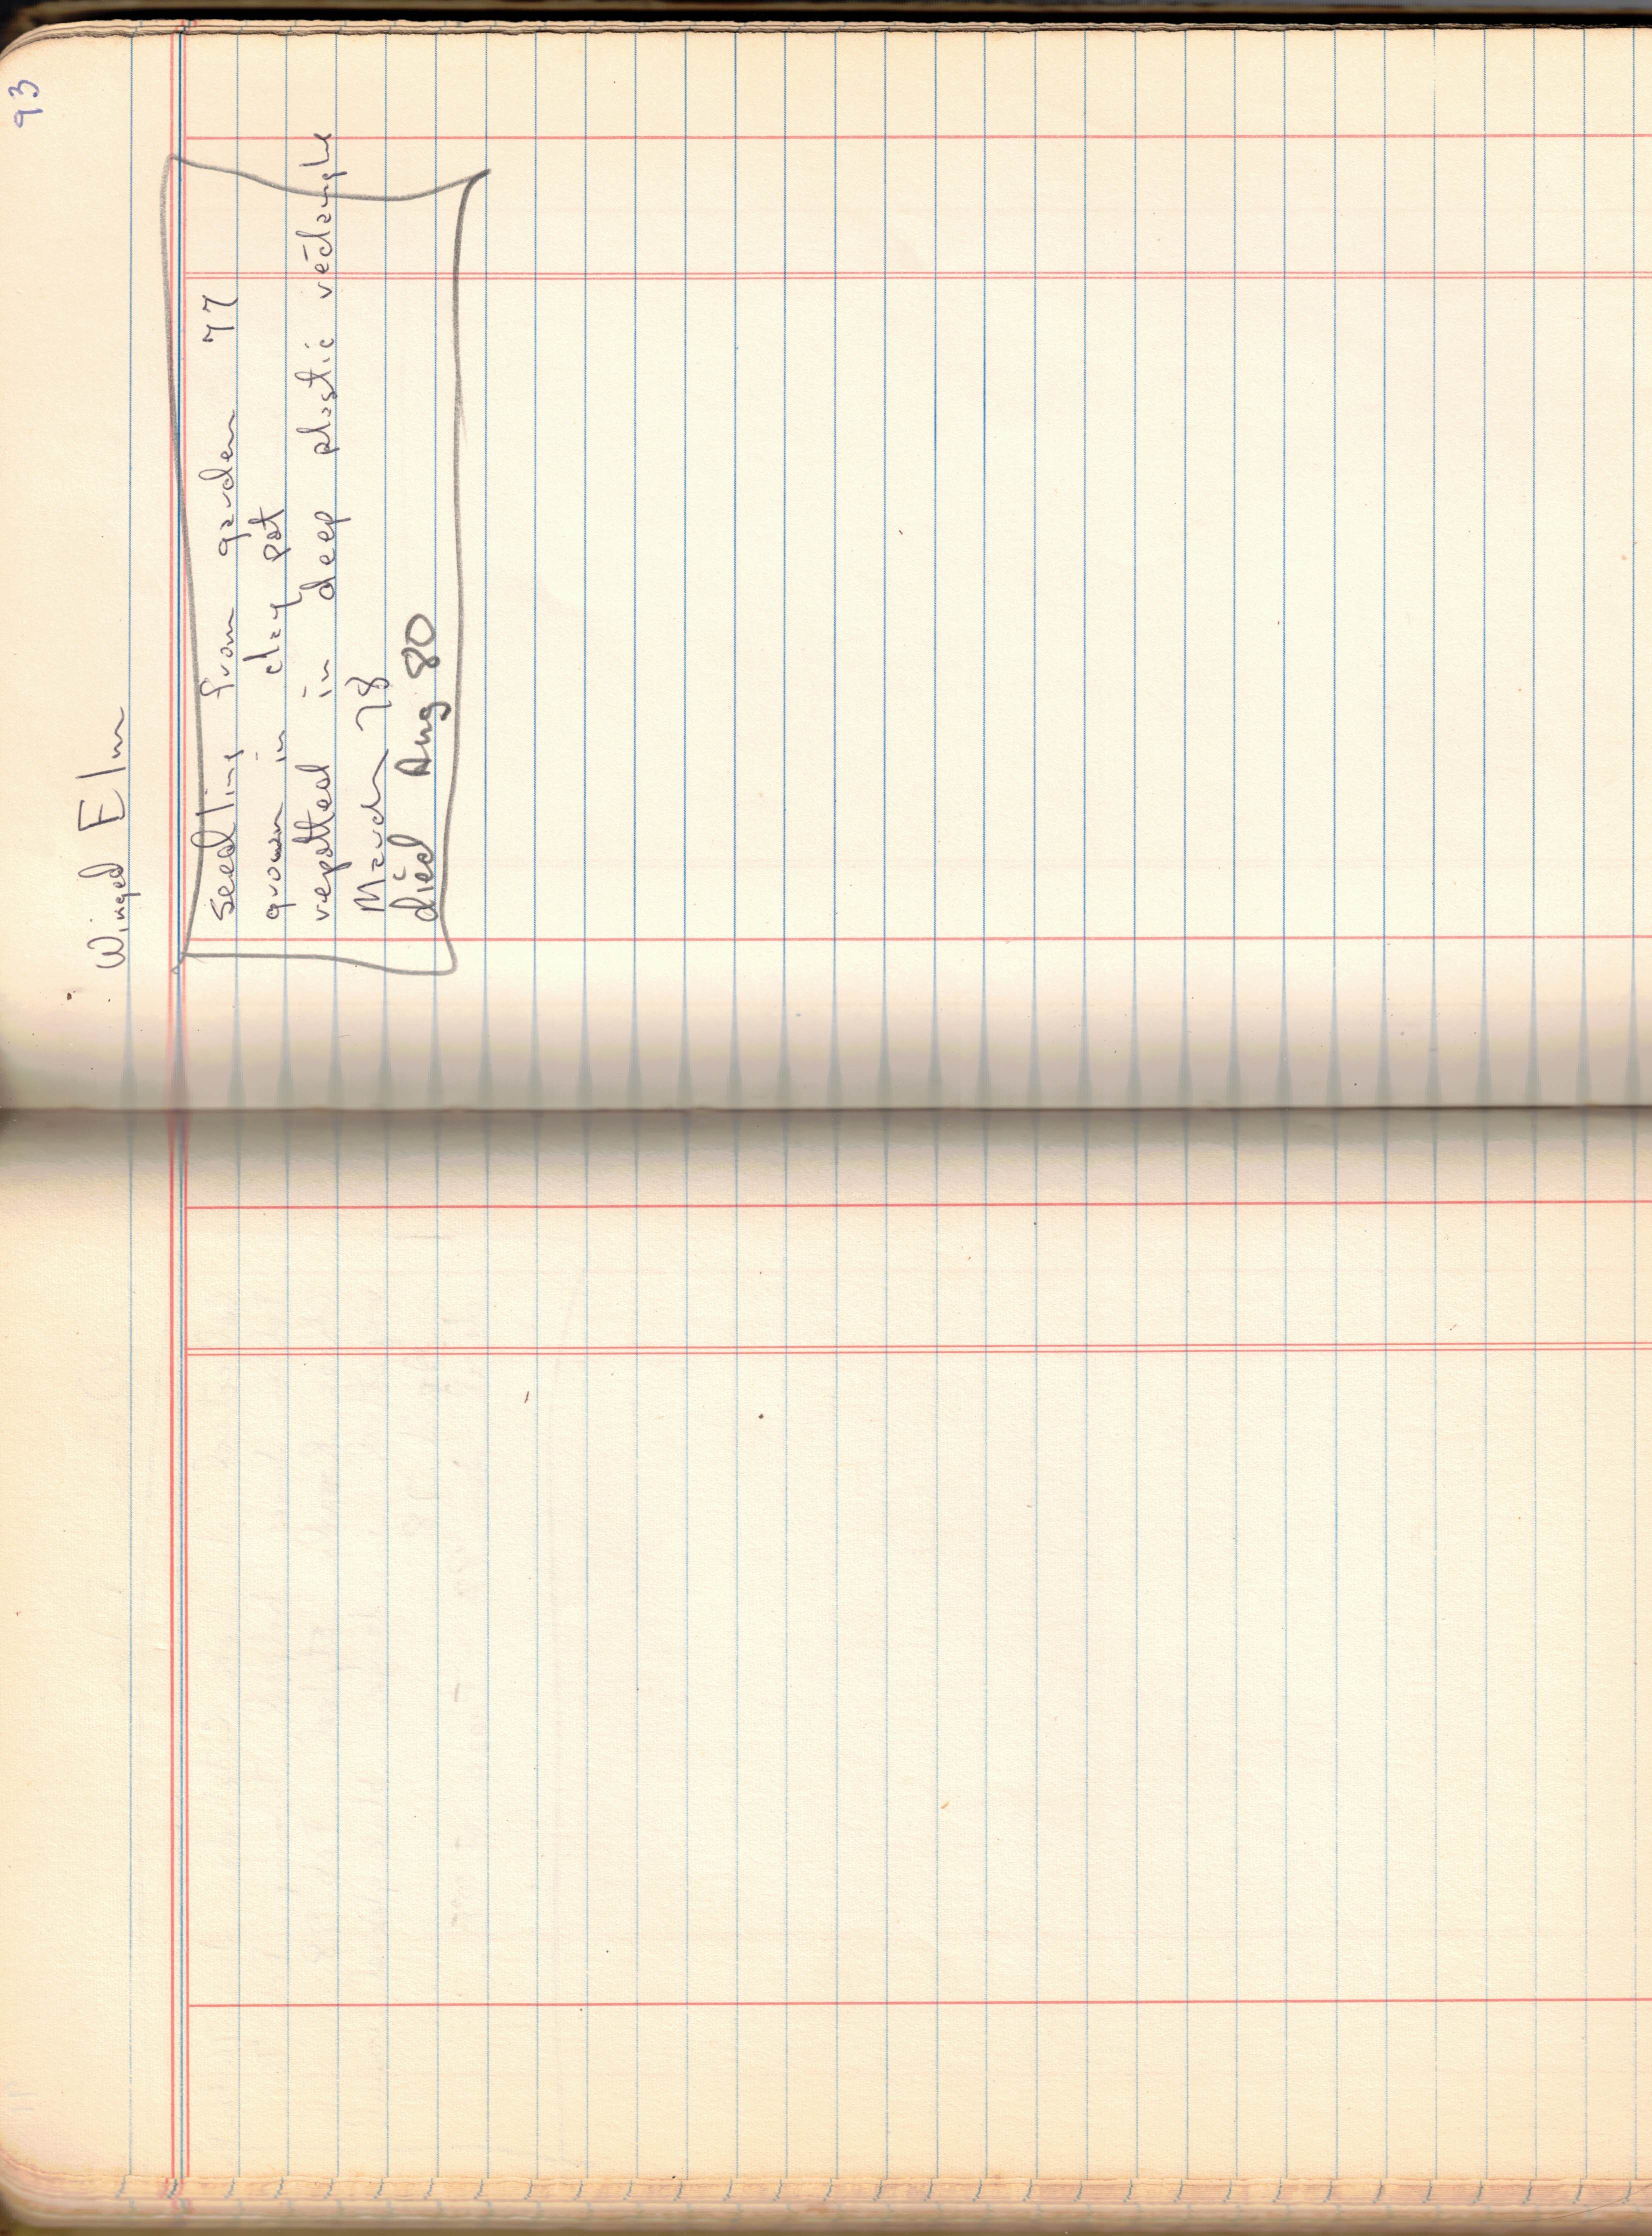 93
Winged Elm
seedling from garden 77
grown in clay pot
repotted in deep plastic rectangle
March 78
died Aug 80